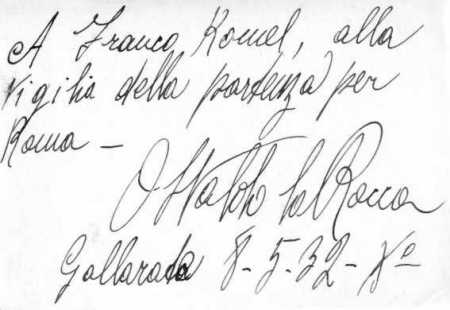 A Franco Komel, alla
vigilia della partenza per
Roma —
Osvaldo La Rocca
Gallarate 8-5-32-Xº